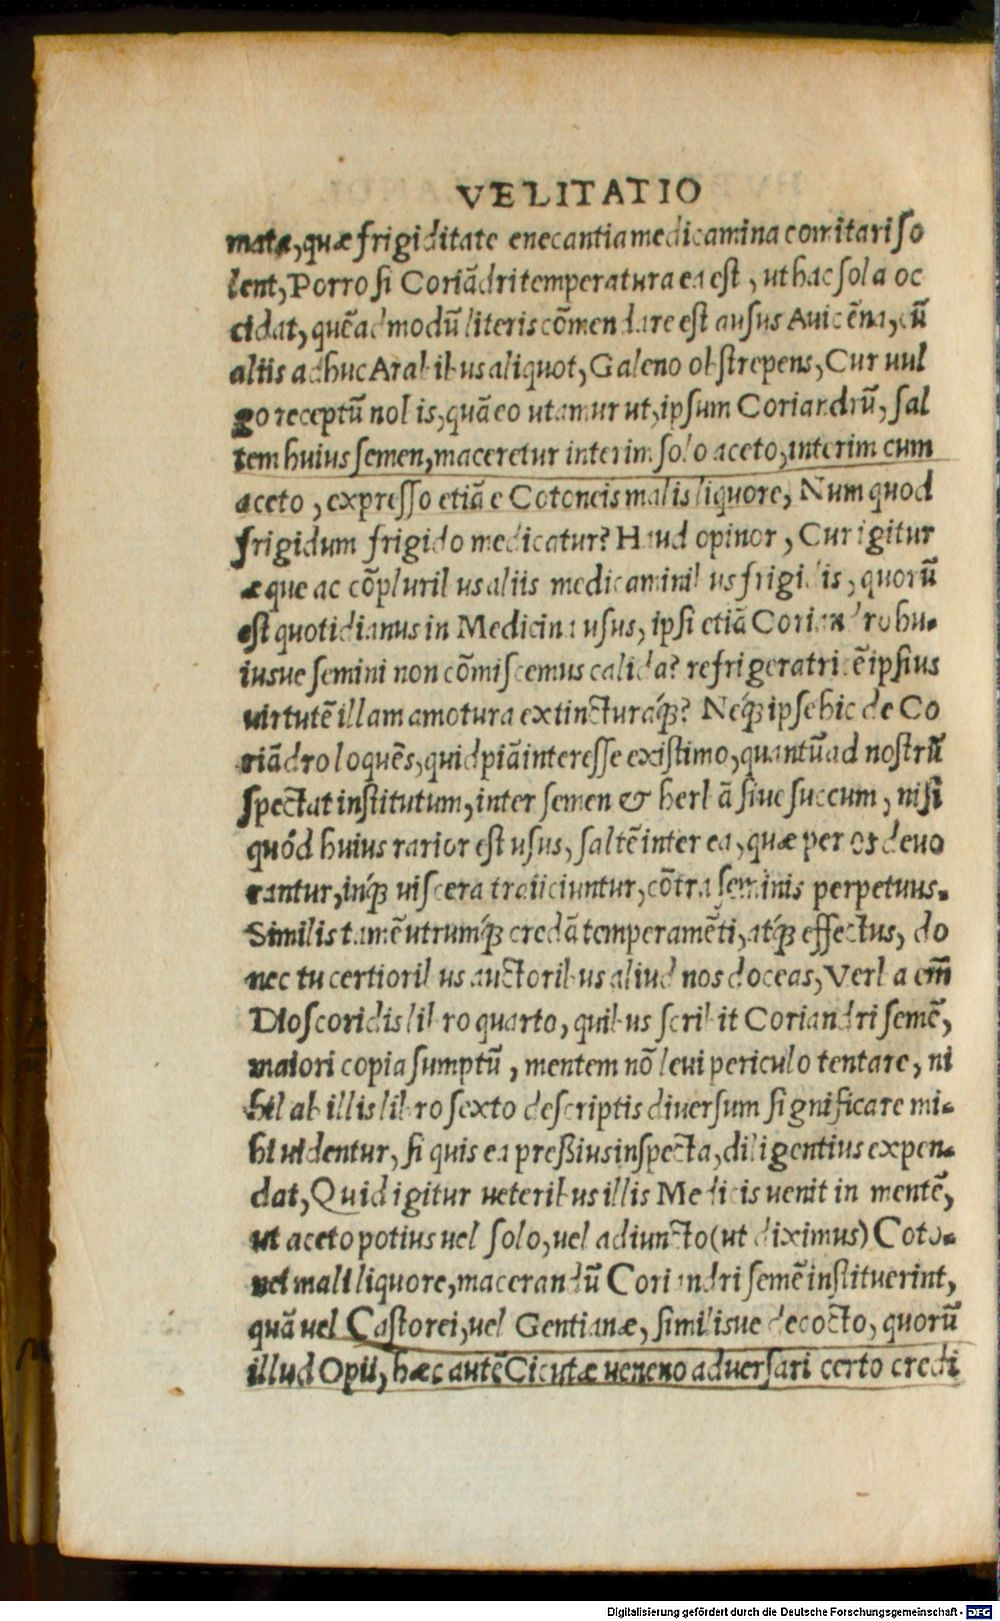 VELITATIO
mata, quæ frigiditate enecantia medicamina comitari so
lent, Porro si Coriādri temperatura ea est, ut hac sola oc
cidat, quēadmodū literis cōmendare est ausus Auicēna, cū
aliis adhuc Arabibus aliquot, Galeno obstrepens, Cur uul
go receptū nobis, quā eo utamur ut, ipsum Coriandrū, sal
tem huius semen, maceretur interim solo aceto, interim cum
aceto, expresso etiā e Cotoneis malis liquore, Num quod
frigidum frigido medicatur? Haud opinor, Cur igitur
æque ac cōpluribus aliis medicaminibus frigidis, quorū
est quotidianus in Medicina usus, ipsi etiā Coriandro hu-
iusue semini non cōmiscemus calida? refrigeratricē ipsius
uirtutē illam amotura extincturaq́;? Neq́; ipse hic de Co
riādro loquēs, quidpiā interesse existimo, quantū ad nostrū
spectat institutum, inter semen & herbā siue succum, nisi
quód huius rarior est usus, saltē inter ea, quæ per os deuo
rantur, inq́; uiscera traiiciuntur, cōtra seminis perpetuus.
Similis tamē utrumq́; credā temperamēti, atq́; effectus, do
nec tu certioribus auctoribus aliud nos doceas, Verba em̄
Dioscoridis libro quarto, quibus scribit Coriandri semē,
maiori copia sumptū, mentem nō leui periculo tentare, ni
hil ab illis libro sexto descriptis diuersum significare mi-
hi uidentur, si quis ea preßius inspecta, diligentius expen-
dat, Quid igitur ueteribus illis Medicis uenit in mentē,
ut aceto potius uel solo, uel adiuncto (ut diximus) Coto-
nei mali liquore, macerandū Coriandri semē instituerint,
quā uel Castorei, uel Gentianæ, similisue decocto, quorū
illud Opii, hæc autē Cicutæ ueneno aduersari certo credi
Digitalisierung gefördert durch die Deutsche Forschungsgemeinschaft - DFG